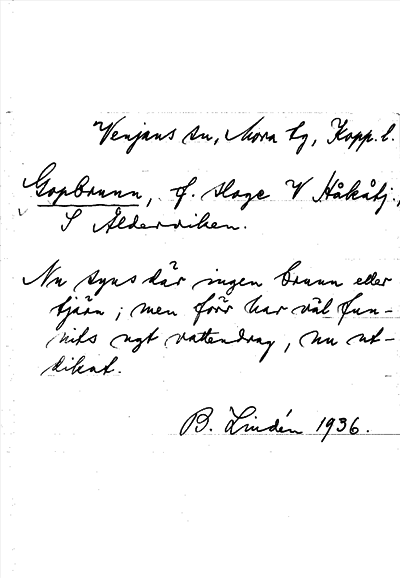 Venjans sn, Mora tg, Kopp. l.
Gopbrunn, f. sloge V Håkåtj.,
S Ålderviken.
Nu syns där ingen brunn eller
tjärn; men förr har väl fun-
nits ngt vattendrag, nu ut-
dikat.
B. Lindén 1936.